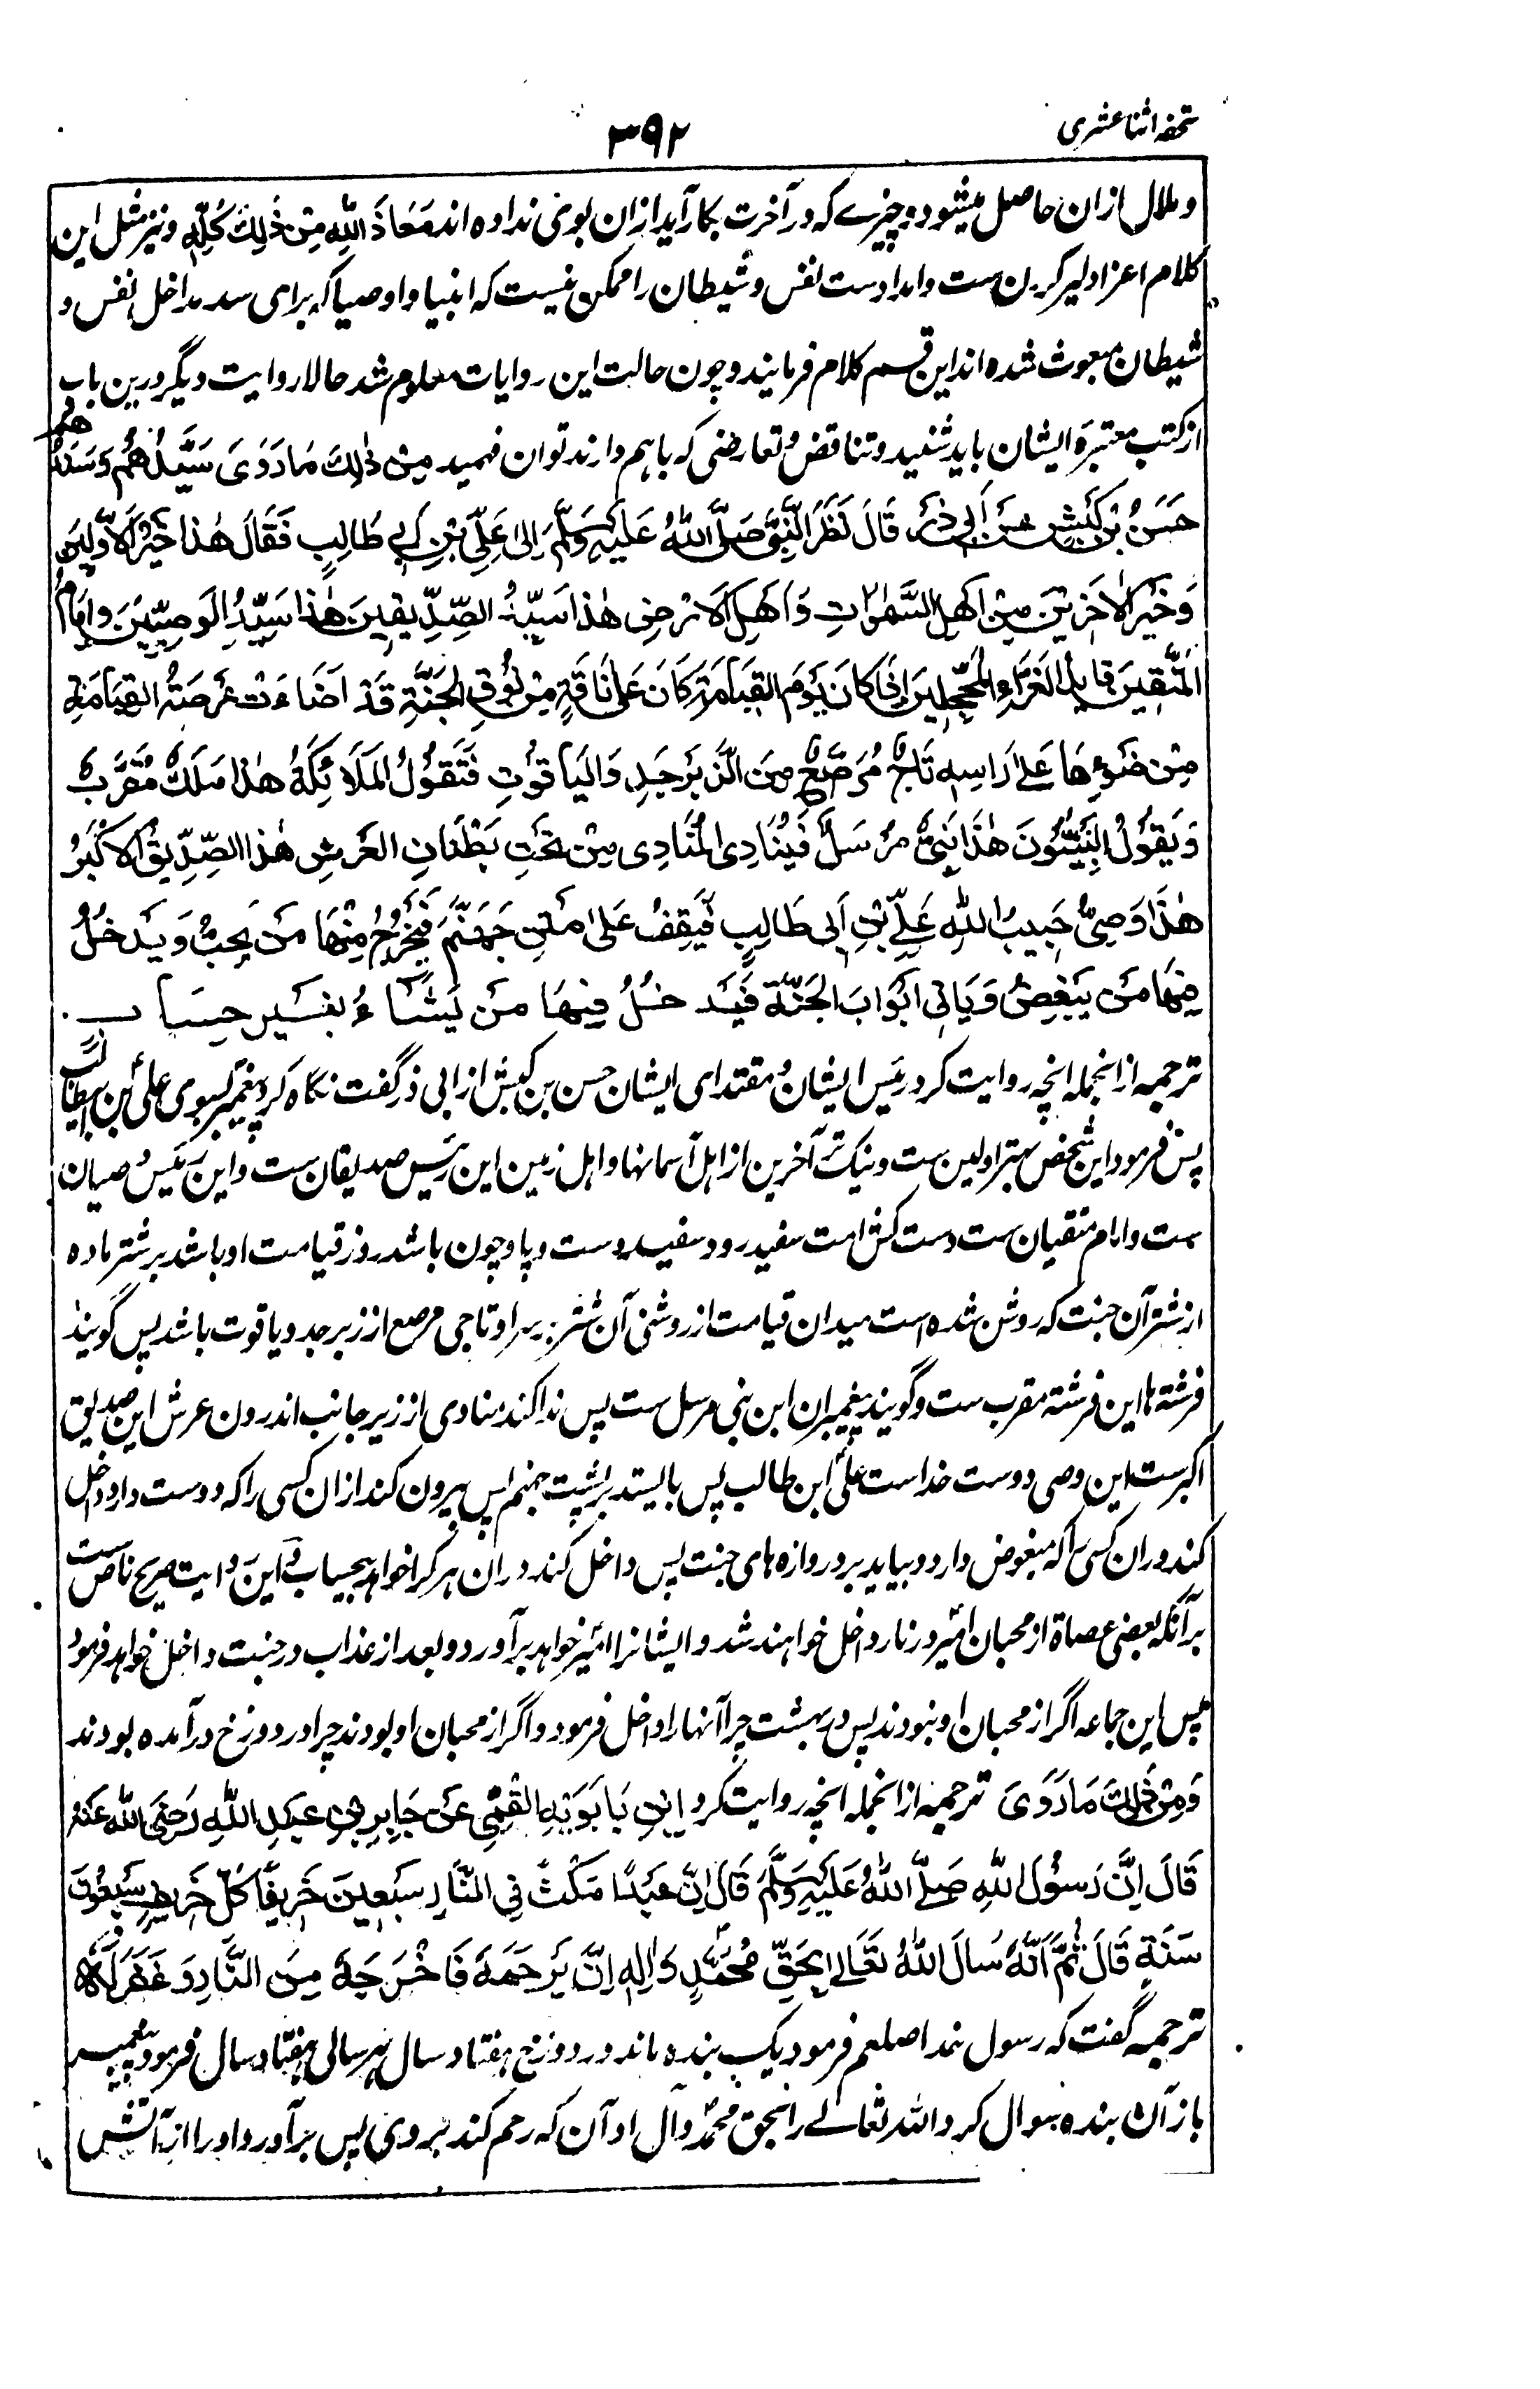 تحفه اثنا عشری
۳۹۲
و ملال ازان حاصل میشود و چیزے که در آخرت بکار آید ازان بوی نداده اند مَعَاذَ اللهِ مِنْ ذٰلِكَ كُلِّهِ و نیز مثل این
کلام اعزا دلیر کردن ست و امداد ست نفس و شیطان را ممکن نیست که انبیا و اوصیا که برای سد مداخل نفس و
شیطان مبعوث شده اند این قسم کلام فرمایند و چون حالت این روایات معلوم شد حالا روایت دیگر درین باب
از کتب معتبرۀ ایشان باید شنید و تناقض و تعارضی که باهم دارند توان فهمید مِنْ ذٰلِكَ مَا رَوٰى سَيِّدُهُمْ وَسَنَدُهُمْ
حَسَنُ بْنُ كَبْشٍ عَنْ اَبِىْ ذَرٍّ قَالَ نَظَرَ النَّبِىُّ صَلَّى اللهُ عَلَيْهِ وَسَلَّمَ اِلٰى عَلِىِّ بْنِ اَبِىْ طَالِبٍ فَقَالَ هٰذَا خَيْرُ الْاَوَّلِيْنَ
وَخَيْرُ الْاٰخَرِيْنَ مِنْ اَهْلِ السَّمٰوَاتِ وَاَهْلِ الْاَرْضِ هٰذَا سَيِّدُ الصِّدِّيْقِيْنَ هٰذَا سَيِّدُ الْوَصِيِّيْنَ وَاِمَامُ
الْمُتَّقِيْنَ قَايِدُ الْغُرِّ الْمُحَجَّلِيْنَ اِذَا كَانَ يَوْمَ الْقِيَامَةِ كَانَ عَلٰى نَاقَةٍ مِنْ نُوْقِ الْجَنَّةِ قَدْ اَضَاءَتْ عَرْصَةُ الْقِيَامَةِ
مِنْ ضَوْءِهَا عَلٰى رَاسِهٖ تَاجٌ مُرَصَّعٌ مِنَ الزَّبَرْجَدِ وَالْيَاقُوْتِ فَتَقُوْلُ الْمَلَائِكَةُ هٰذَا مَلَكٌ مُقَرَّبٌ
وَيَقُوْلُ النَّبِيُّوْنَ هٰذَا نَبِىٌّ مُرْسَلٌ فَيُنَادِى الْمُنَادِى مِنْ تَحْتِ بَطْنَانِ الْعَرْشِ هٰذَا الصِّدِّيْقُ الْاَكْبَرُ
هٰذَا وَصِىُّ حَبِيْبِ اللهِ عَلِىُّ بْنُ اَبِىْ طَالِبٍ فَيَقِفُ عَلٰى مَتْنِ جَهَنَّمَ فَيُخْرِجُ مِنْهَا مَنْ يُحِبُّ وَيُدْخِلُ
فِيْهَا مَنْ يُبْغِضُ وَيَاتِىْ اَبْوَابَ الْجَنَّةِ فَيُدْخِلُ فِيْهَا مَنْ يَّشَاءُ بِغَيْرِ حِسَابٍ
ترجمه از انجمله انچه روایت کرد رئیس ایشان و مقتدای ایشان حسن بن کبش از ابی ذر گفت نگاه کرد پیغمبر بسوی علی بن ابیطالب
پس فرمود این شخص بهتر اولین ست و نیک تر آخرین از اهل آسمانها و اهل زمین این رئیس صدیقان ست و این رئیس وصیان
ست و امام متقیان ست دست کش امت سفید رو و سفید دست و پا و چون باشد روز قیامت او باشد بر شتر ماده
از شتران جنت که روشن شده است میدان قیامت از روشنی آن شتر بر سر او تاجی مرصع از زبرجد و یاقوت باشد پس گویند
فرشته ها این فرشته مقرب ست و گویند پیغمبران این نبی مرسل ست پس ندا کند منادی از زیر جانب اندرون عرش این صدیق
اکبر ست این وصی دوست خداست علی ابن طالب پس بایستد بر پشت جهنم پس بیرون کند ازان کسی را که دوست دارد و داخل
کند دران کسی را که مبغوض دارد و بیاید بر دروازه های جنت پس داخل کند دران هر کرا خواهد بیحساب و این روایت صریح ناص ست
بر آنکه بعضی عصاة از محبان امیر در نار داخل خواهند شد و ایشانرا امیر خواهد برآورد و بعد از عذاب در جنت داخل خواهد فرمود
پس این جماعه اگر از محبان او نبودند پس در بهشت چرا آنها را داخل فرمود و اگر از محبان او بودند چرا در دوزخ درآمده بودند
وَمِنْ ذٰلِكَ مَا رَوٰى ترجمه از انجمله انچه روایت کرد اِبْنُ بَابَوَيْهِ الْقُمِّىُّ عَنْ جَابِرِ بْنِ عَبْدِ اللهِ رَضِىَ اللهُ عَنْهُ
قَالَ اِنَّ رَسُوْلَ اللهِ صَلَّى اللهُ عَلَيْهِ وَسَلَّمَ قَالَ اِنَّ عَبْدًا مَكَثَ فِى النَّارِ سَبْعِيْنَ خَرِيْفًا كُلُّ خَرِيْفٍ سَبْعُوْنَ
سَنَةٍ قَالَ ثُمَّ اَنَّهُ سَالَ اللهَ تَعَالٰى بِحَقِّ مُحَمَّدٍ وَاٰلِهٖ اِنَّ يَرْحَمَهُ فَاَخْرَجَهُ مِنَ النَّارِ وَغَفَرَ لَهُ
ترجمه گفت که رسول خدا صلعم فرمود یک بنده ماند در دوزخ هفتاد سال هر سالی هفتاد سال فرمود پیغمبر
باز آن بنده سوال کرد الله تعالے را بحق محمد و آل او آن که رحم کند بروی پس برآورد او را از آتش